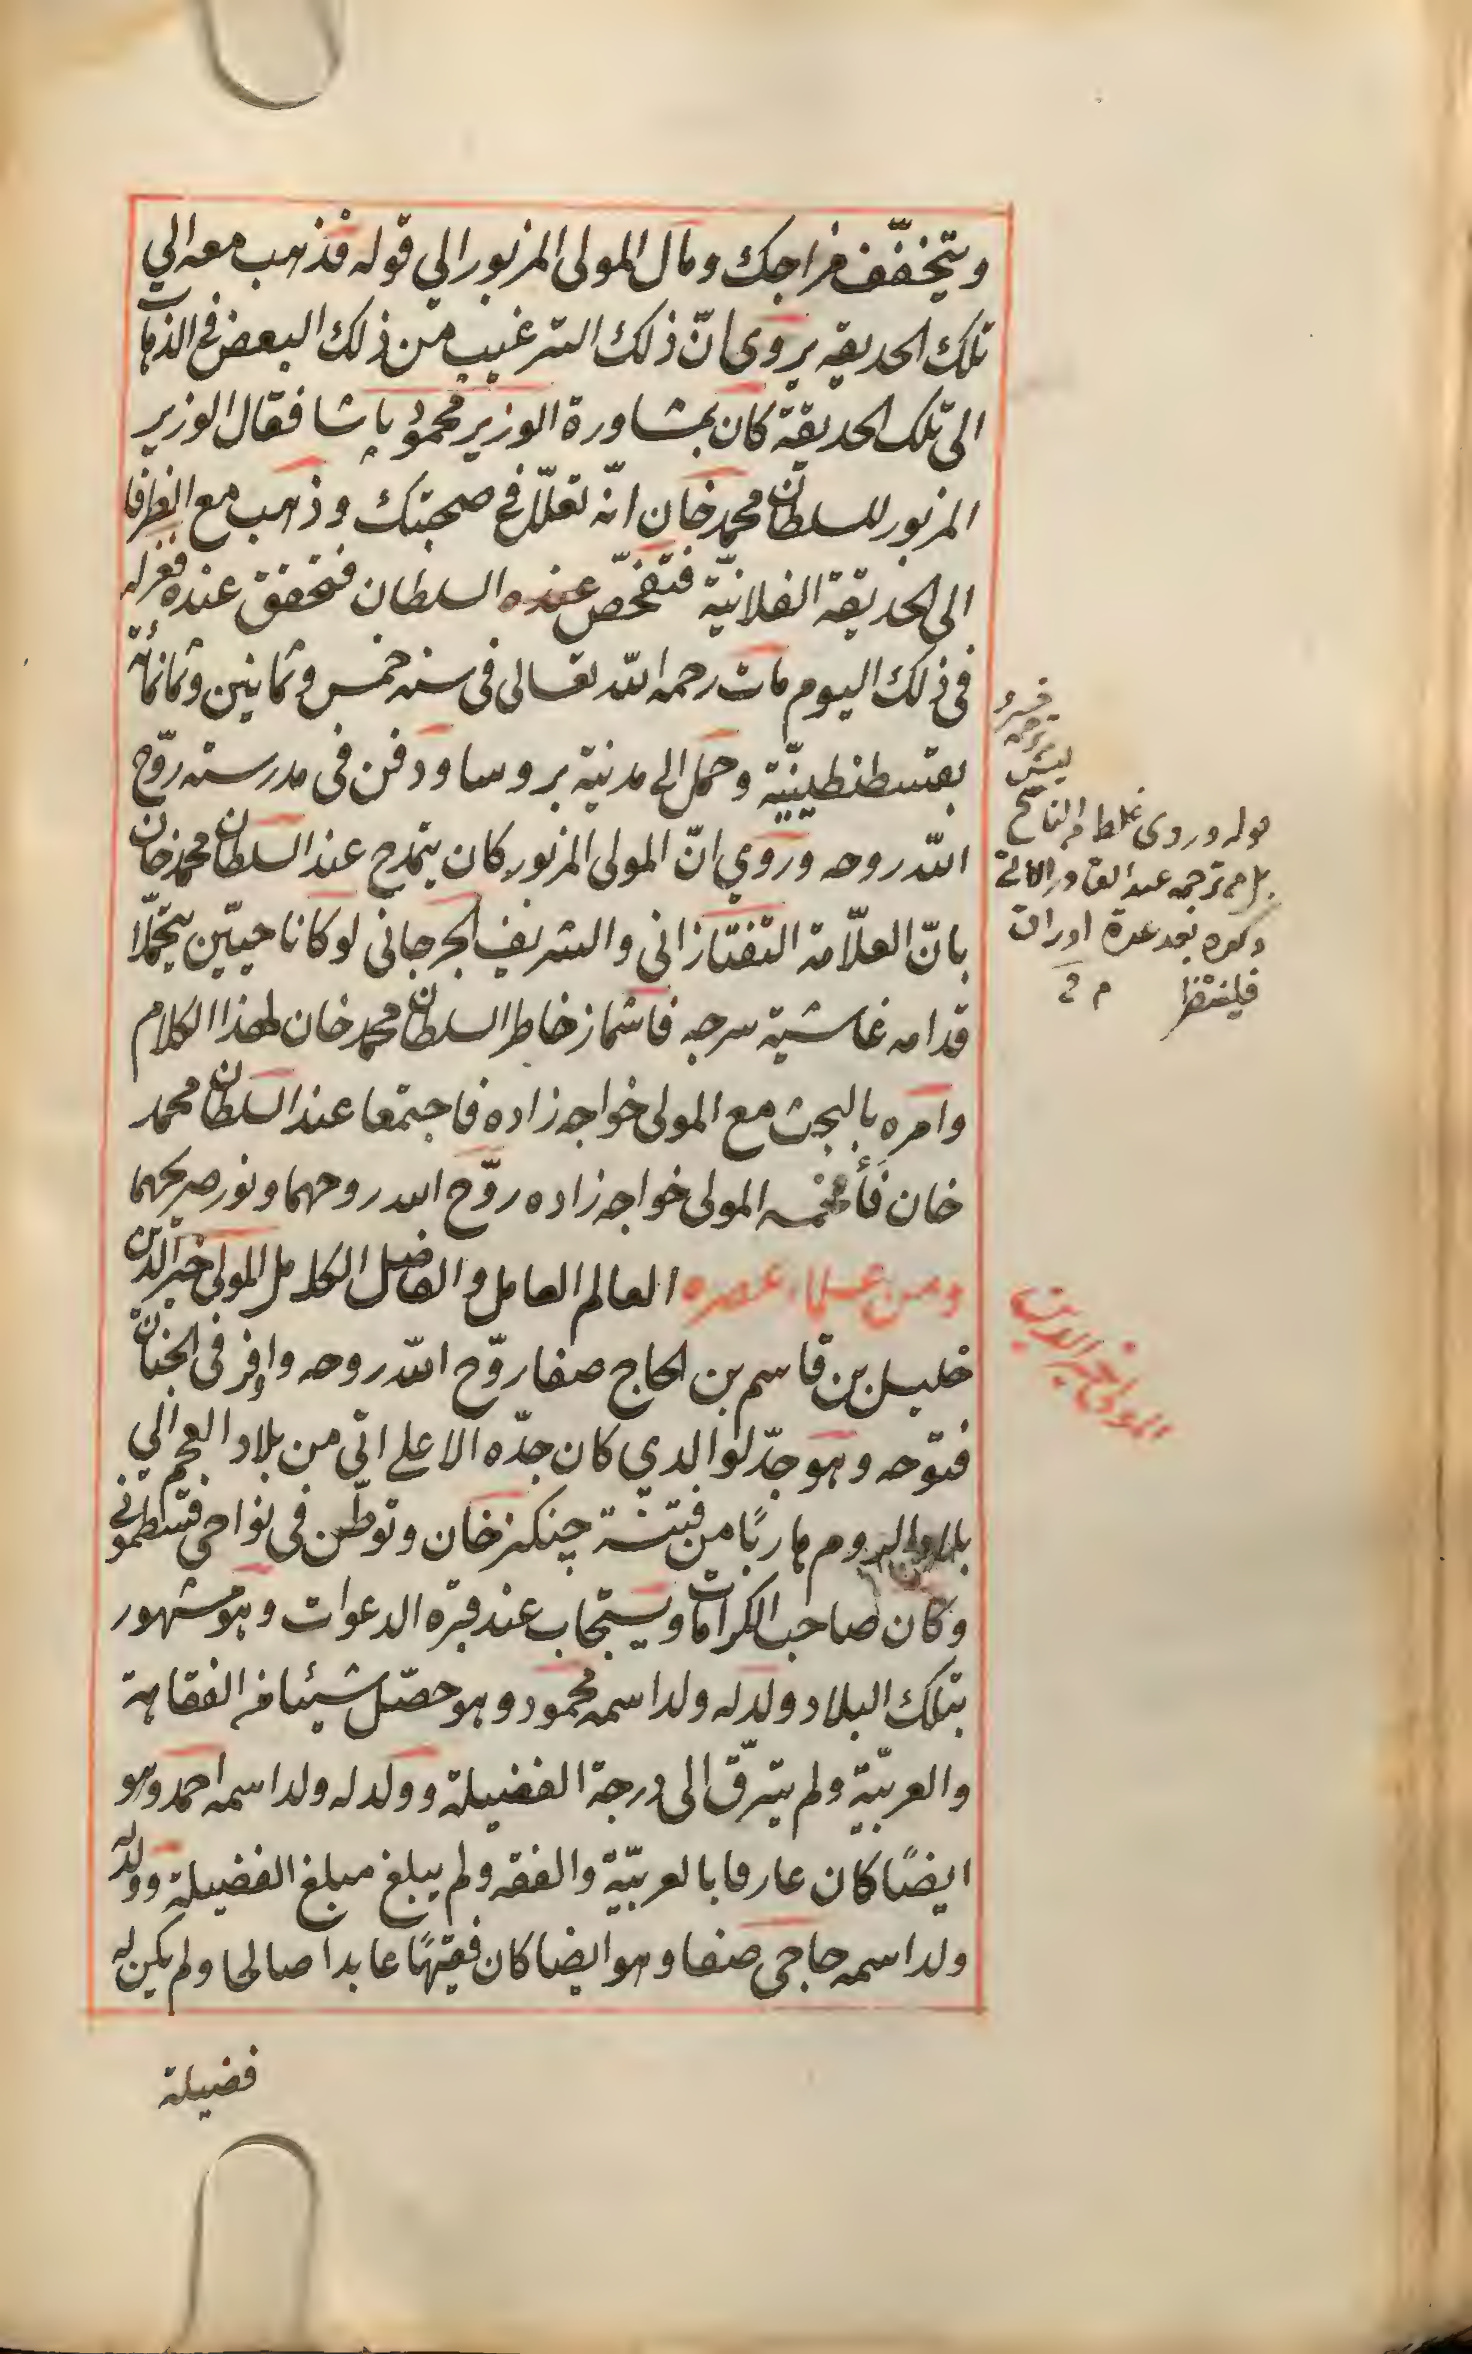 ويتخفّف مزاجك ومال المولى المزبور الي قوله فذهب معه الي
تلك الحديقه يروى انّ ذلك الترغيب من ذلك البعض في الذهاب
الى تلك الحديقة كان بمشاورة الوزير محمود پاشا فقال الوزير
المزبور للسلطان محمد خان انّه تعلّل في صحبتك وذهب مع الظرفا
الى الحديقة الفلانيّة فتفحّص عنده السلطان فتحقق عنده فعزله
في ذلك اليوم مات رحمه الله تعالى فى سنه خمس وثمانين وثمانمائة
بقسطنطينيّة وحمل الى مدينة بروسا ودفن فى مدرسته روّح
الله روحه وروي انّ المولى المزبور كان يتمدح عند السلطان محمد خان
بانّ العلّامة التفتازانى والشريف الجرجانى لو كانا حييّن يتحملّا
قدامه غاشية سرجه فاشماز خاطر السلطان محمد خان لهذا الكلام
وامره بالبحث مع المولى خواجه زاده فاجتمعا عند السلطان محمد
خان فأفحمه المولى خواجه زاده روّح الله روحهما ونور ضريحهما
ومن علماء عصره العالم العامل والفاضل الكامل المولى خير الدين
خليل بن قاسم بن الحاج صفا روّح الله روحه واوفر فى الجنان
فتوحه وهو جدّ لوالدي كان جدّه الاعلى اتى من بلاد العجم الي
بلاد الروم هاربًا من فتنة چنكز خان وتوطّن فى نواحى قسطمونى
وكان صاحب الكرامات ويستجاب عند قبره الدعوات وهو مشهور
بتلك البلاد ولد له ولد اسمه محمود وهو حصّل شيئا من الفقاهة
والعربيّة ولم يترقّ الى درجة الفضيلة وولد له ولد اسمه احمد وهو
ايضًا كان عارفا بالعربيّة والفقه ولم يبلغ مبلغ الفضيلة وولد له
ولد اسمه حاجى صفا وهو ايضا كان فقيهًا عابدا صالحا ولم يكن له
فضيلة
قوله وروى غلط من الناسخ
بل من ترجمه عبد القادر الاتى
ذكره بعد عدة اوراق
فلينتظر م
المولى خير الدين